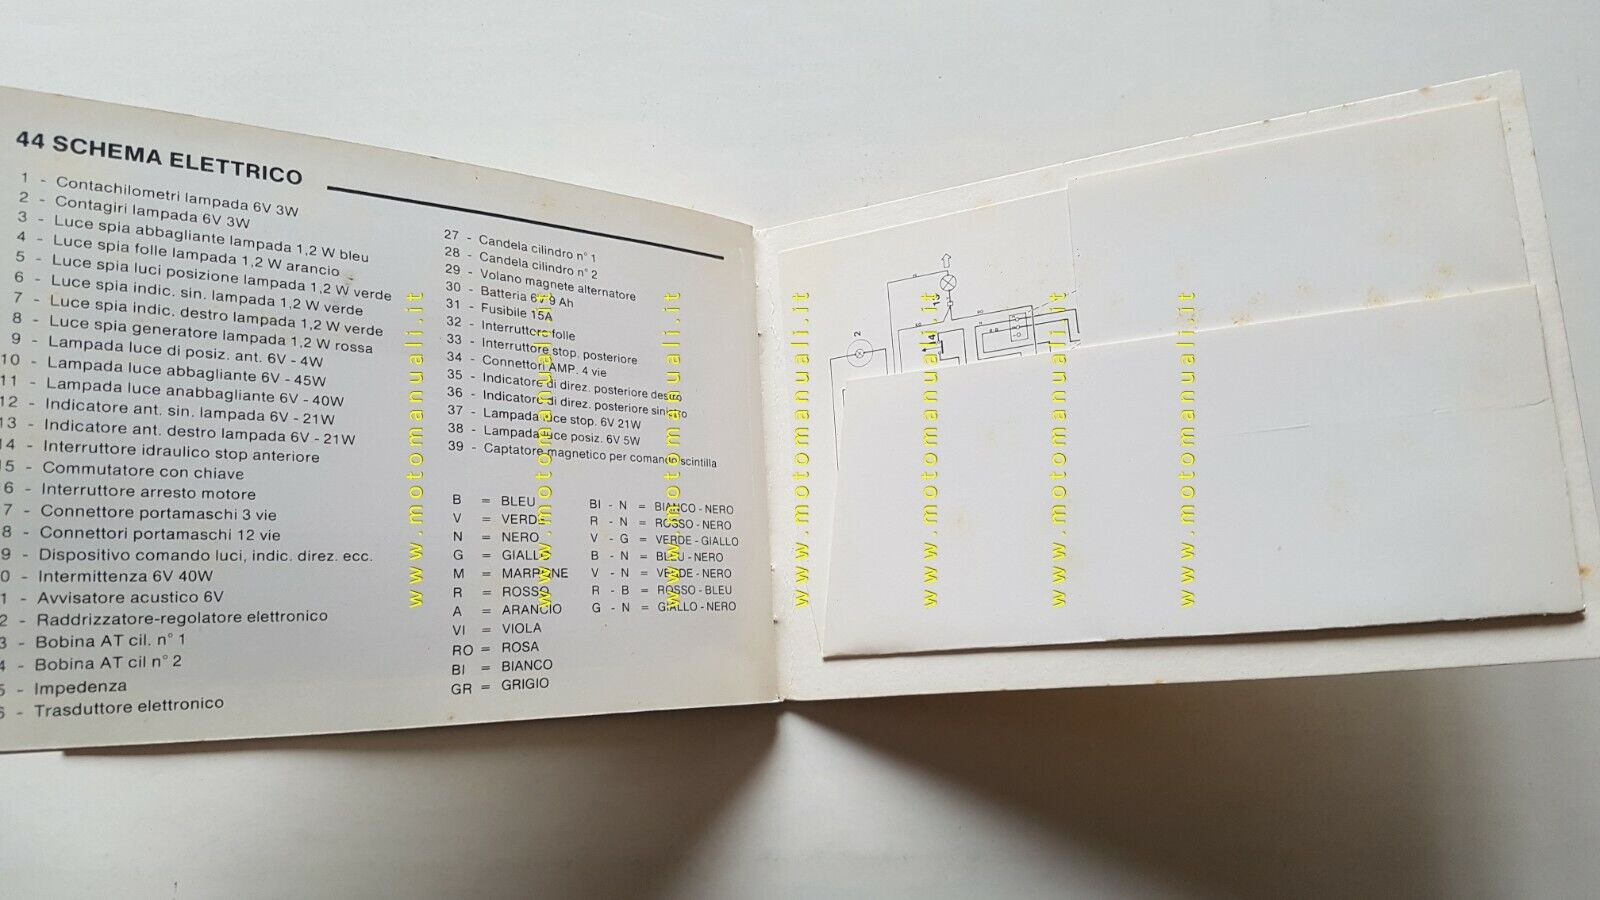 44 SCHEMA ELETTRICO
1 - Contachilometri lampada 6V 3W
2 - Contagiri lampada 6V 3W
3 - Luce spia abbagliante lampada 1,2 W bleu
4 - Luce spia folle lampada 1,2 W arancio
5 - Luce spia luci posizione lampada 1,2 W verde
6 - Luce spia indic. sin. lampada 1,2 W verde
7 - Luce spia indic. destro lampada 1,2 W verde
8 - Luce spia generatore lampada 1,2 W rossa
9 - Lampada luce di posiz. ant. 6V - 4W
10 - Lampada luce abbagliante 6V - 45W
11 - Lampada luce anabbagliante 6V - 40W
12 - Indicatore ant. sin. lampada 6V - 21W
13 - Indicatore ant. destro lampada 6V - 21W
14 - Interruttore idraulico stop anteriore
15 - Commutatore con chiave
6 - Interruttore arresto motore
7 - Connettore portamaschi 3 vie
8 - Connettori portamaschi 12 vie
9 - Dispositivo comando luci, indic. direz. ecc.
0 - Intermittenza 6V 40W
1 - Avvisatore acustico 6V
2 - Raddrizzatore-regolatore elettronico
3 - Bobina AT cil. n° 1
4 - Bobina AT cil n° 2
5 - Impedenza
6 - Trasduttore elettronico
27 - Candela cilindro n° 1
28 - Candela cilindro n° 2
29 - Volano magnete alternatore
30 - Batteria 6V 9 Ah
31 - Fusibile 15A
32 - Interruttore folle
33 - Interruttore stop. posteriore
34 - Connettori AMP. 4 vie
35 - Indicatore di direz. posteriore destro
36 - Indicatore di direz. posteriore sinistro
37 - Lampada luce stop. 6V 21W
38 - Lampada luce posiz. 6V 5W
39 - Captatore magnetico per comando scintilla
B = BLEU
V = VERDE
N = NERO
G = GIALLO
M = MARRONE
R = ROSSO
A = ARANCIO
VI = VIOLA
RO = ROSA
BI = BIANCO
GR = GRIGIO
BI - N = BIANCO-NERO
R - N = ROSSO-NERO
V - G = VERDE-GIALLO
B - N = BLEU-NERO
V - N = VERDE-NERO
R - B = ROSSO-BLEU
G - N = GIALLO-NERO
2
14
www.motomanuali.it
www.motomanuali.it
www.motomanuali.it
www.motomanuali.it
www.motomanuali.it
www.motomanuali.it
www.motomanuali.it